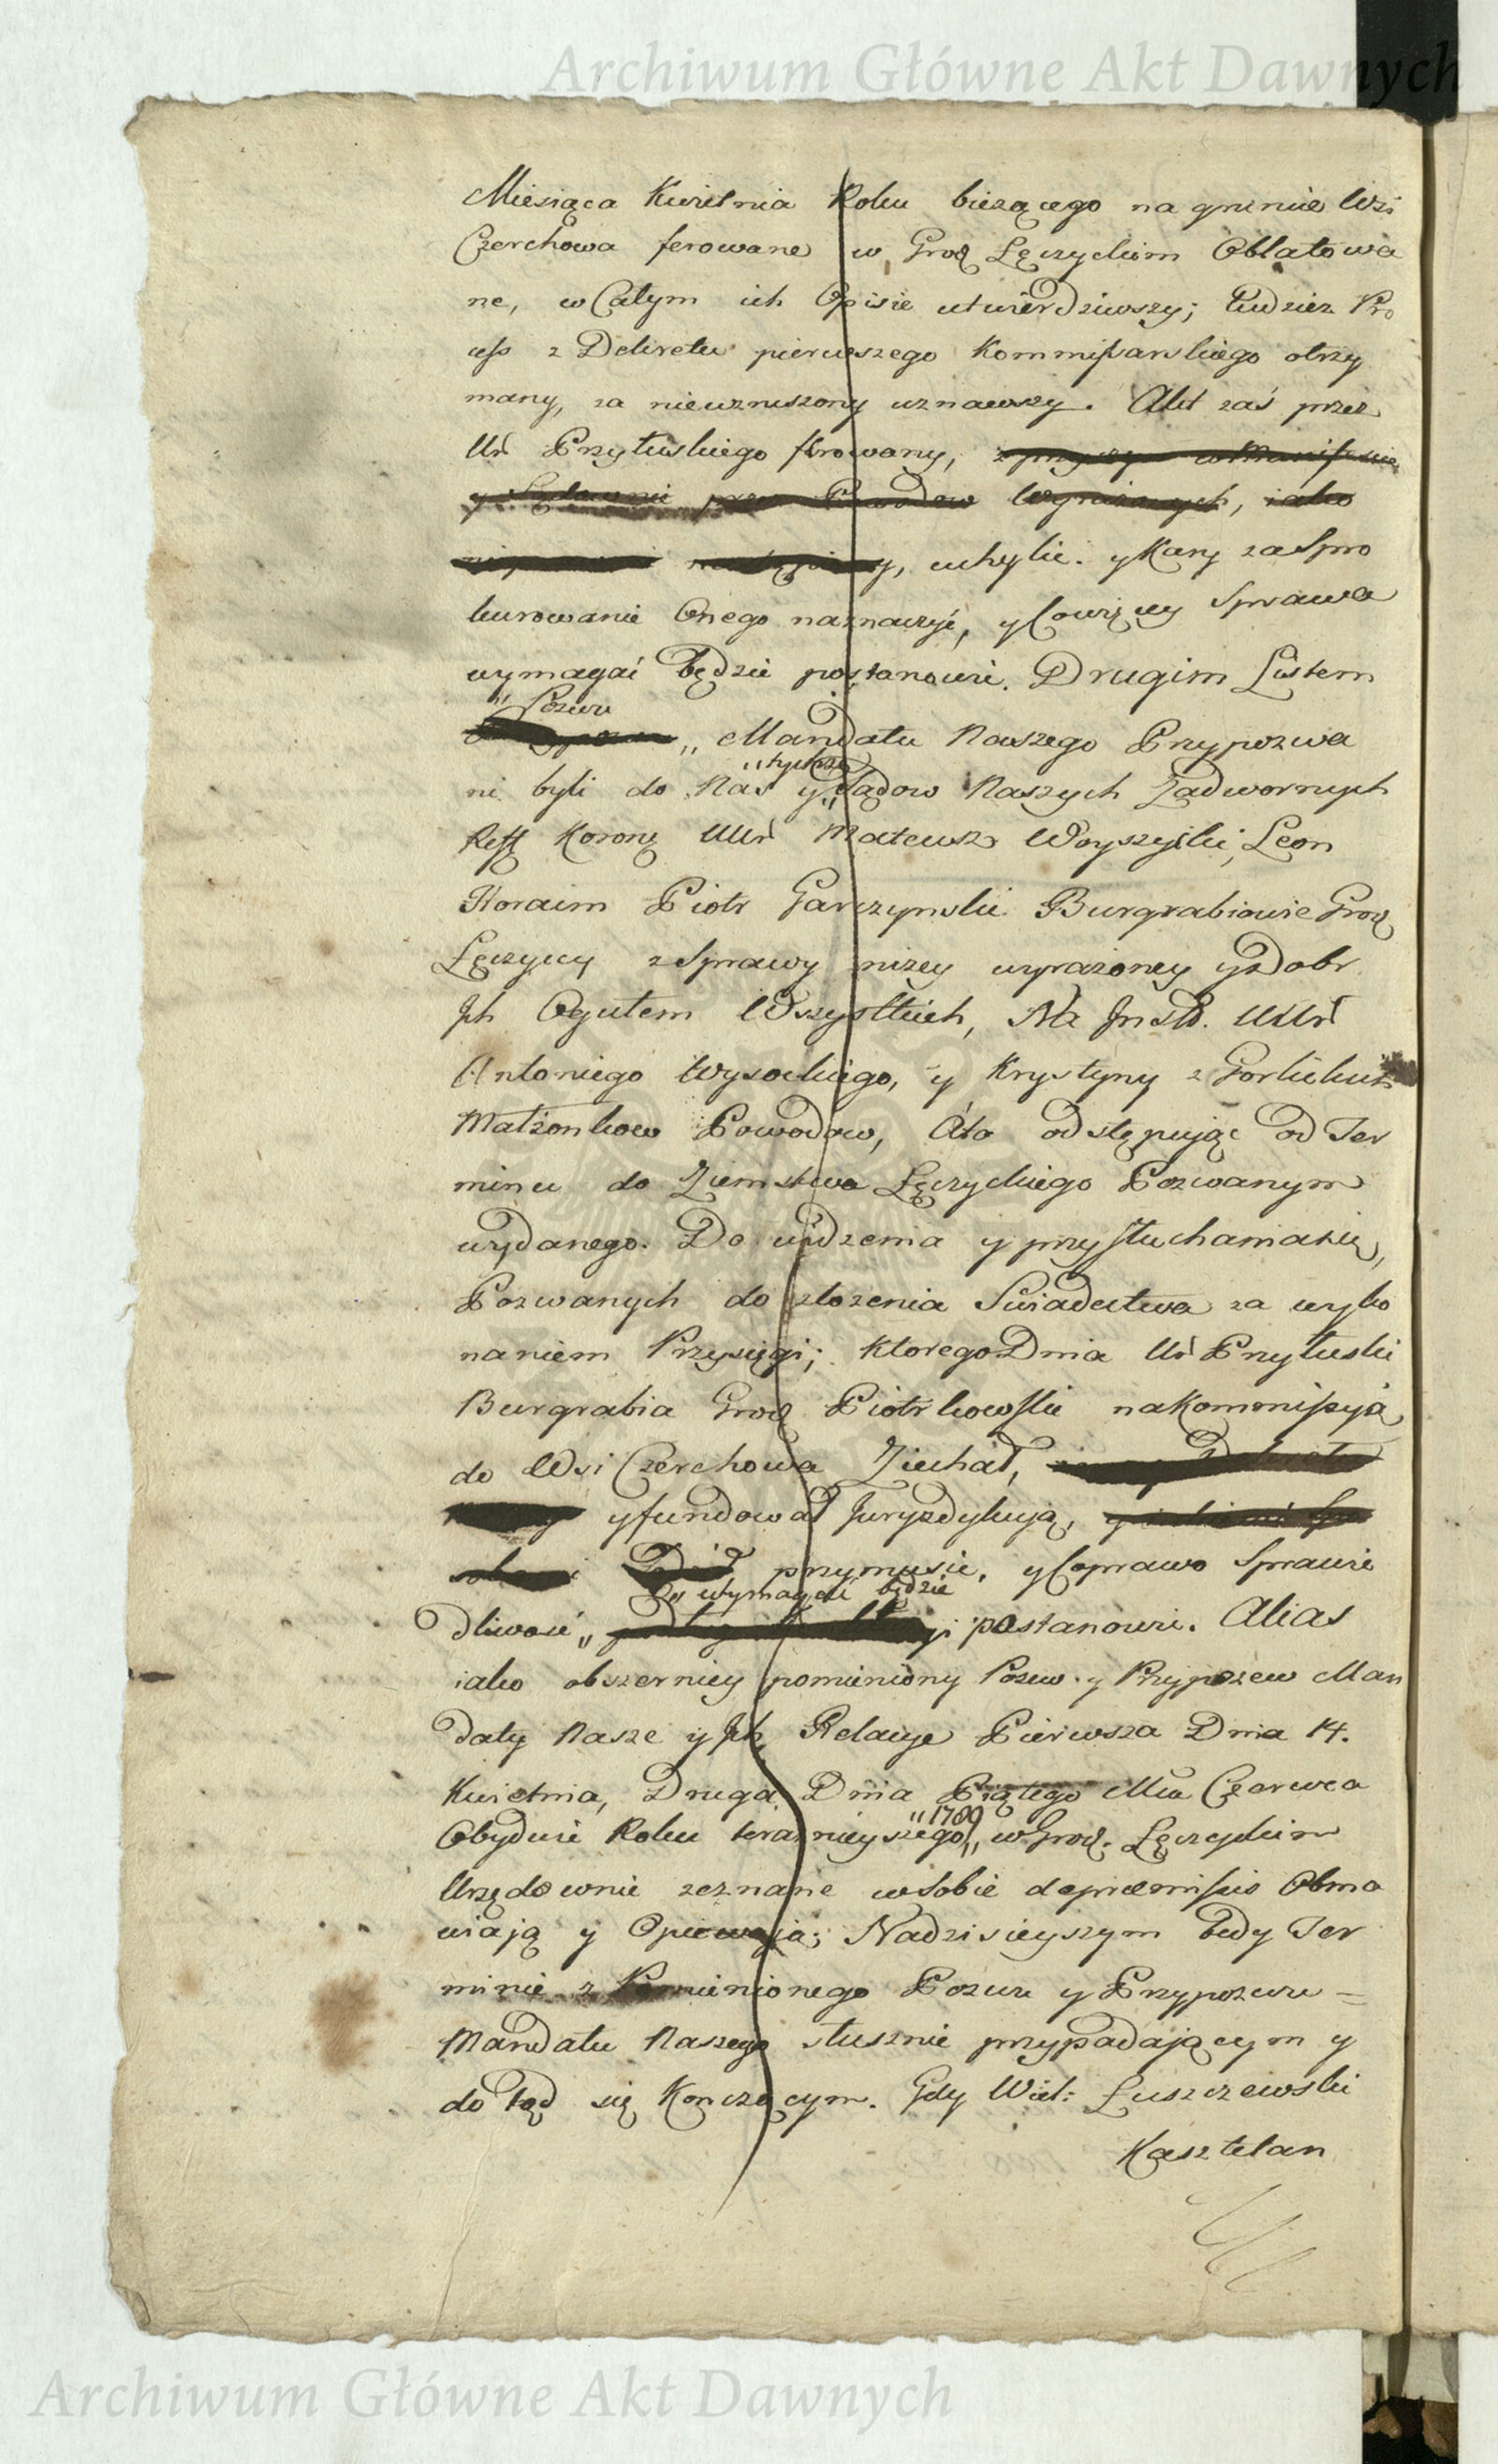 Archiwum Główne Akt Dawnych
Miesiąca Kwietnia Roku biezącego na gruncie Wsi
Czerchowa ferowane w Grod Łęczyckim Oblatowa
ne, w Całym ich Opisie utwierdziwszy; tudziez Pro
cess z Dekretu pierwszego Kommissarskiego otrzy
many, za niewzruszony uznawszy. Akt zaś przez
Ur Przyłuskiego ferowany,
, iako
, uchylić. y Kary za Spro
kurowanie Onego naznaczyć, y Cowięcey Sprawa
wymagać będzie postanowić. Drugim Listem
" Pozwu
„ Mandatu Naszego Przypozwa
" tychże
ni byli do Nas y „ Sądow Naszych Zadwornych
Reff Koronę UUr Mateusz Woyszyski, Leon
Koraim Piotr Garczynski Burgrabiowie Grod
Łęczyccy z Sprawy nizey wyrazoney y z Dobr
Jch Ogułem Wszystkich, Na Jnst. UUr
Antoniego Wysockiego, y Krystyny z Gorlickich
Małżonkow Powodow, Ato odstępując od Ter
minu do Ziemstwa Łęczyckiego Pozwanym
wydanego. Do widzenia y przysłuchania się,
Pozwanych do złozenia Swiadectwa za wyko
naniem Przysięgi; ktoregoDnia Ur Przyłuski
Burgrabia Grod Piotrkowski na Kommissyją
do Wsi Czerchowa Ziechał,
y fundował Juryzdykcyją,
przymusić, y Coprawo Sprawie
" wymagać będzie
dliwość „ postanowić. Alias
iako obszerniey pomieniony Pozew y Przypozew Man
daty Nasze y Jch Relacye Pierwsza Dnia 14.
Kwietnia, Druga Dnia Piątego Mca Czerwca
" 1789
Obydwie Roku teraznieyszego „ w Grod. Łęczyckim
Urzędownie zeznane w Sobie de præmissis Obma
wiają y Opiewają; Nadzisieyszym tedy Ter
minie z Pomienionego Pozwu y Przypozwu =
Mandatu Naszego słusznie przypadaiącym y
do tąd się Konczącym. Gdy Wiel: Łuszczewski
Kasztelan
Archiwum Główne Akt Dawnych